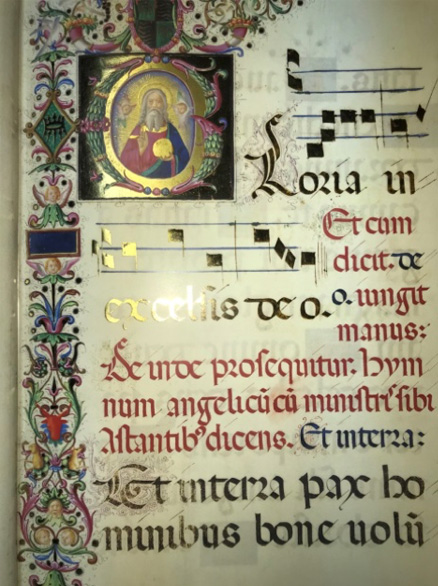 Gloria in
Et cum
dicit. de
excelsis de o.
o. iungit
manus:
De inde prosequitur. hym
num angelicū cū ministrˢ sibi
Astantibꝰ dicens. Et in terra:
Et in terra pax ho
minibus bone uolū